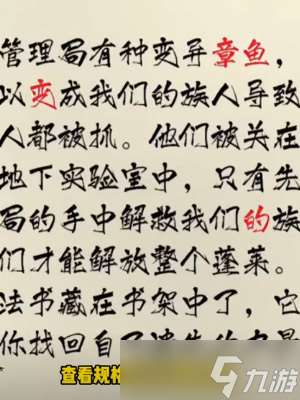 管理局有种变异章鱼，
以变成我们的族人导致
人都被抓。他们被关在
地下实验室中，只有先
局的手中解救我们的族
们才能解放整个蓬莱。
法书藏在书架中了，它
你找回自己
查看规格
九游